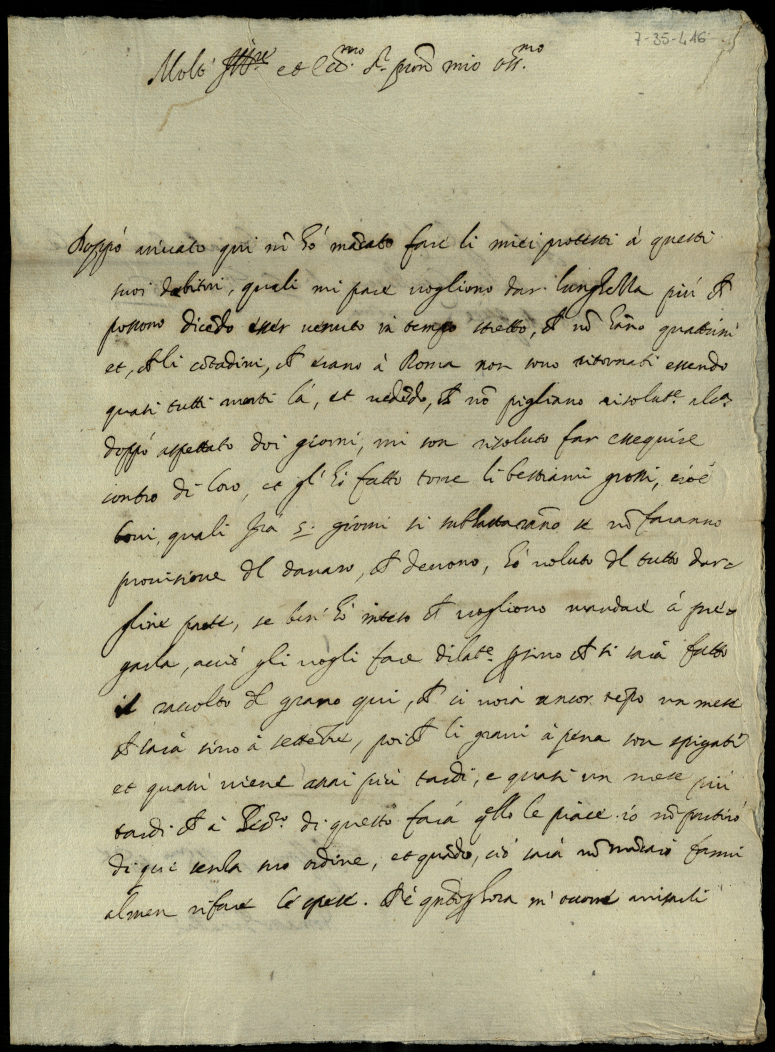 7-35-416
Molt' Ill.re et Ecc.mo S.r pron mio oss.mo
Doppò arivato qui nō hò mācato fare li miei protesti à questi
suoi debitri, quali mi pare vogliono dar lunghezza più ch
possono dicēdo esser venuto in tempo stretto, ch nō hāno quattrini
et, ch li cōtadini, ch erano à Roma non sono ritornati essendo
quasi tutti morti là, et vedēdo, ch nō pigliano risolut.e alc.a
doppò aspettato doi giorni, mi son risoluto far essequire
contro di loro, et gl' hò fatto torre li bestiami grossi, cioè
bovi, quali frà 5. giorni si subbastarāno se nō faranno
provisione del danaro, ch devono, hò voluto del tutto dar-
gline parte, se ben' hò inteso ch vogliono mandare à pre-
garla, acciò gli vogli fare dilat.e sino ch si sarà fatto
il raccolto del grano qui, ch ci vorà ancor tēpo un mese
ch sarà sino à settēbre, poich li grani à pena son spigati
et quasi viene assai più tardi, e quasi un mese più
tardi ch à di questo farà qllo le piace. io nō partirò
di qui senza suo ordine, et quādo, ciò sarà nō mācarò farmi
almen rifare le spese. Ch'è quāto p hora m' occorre avisarli